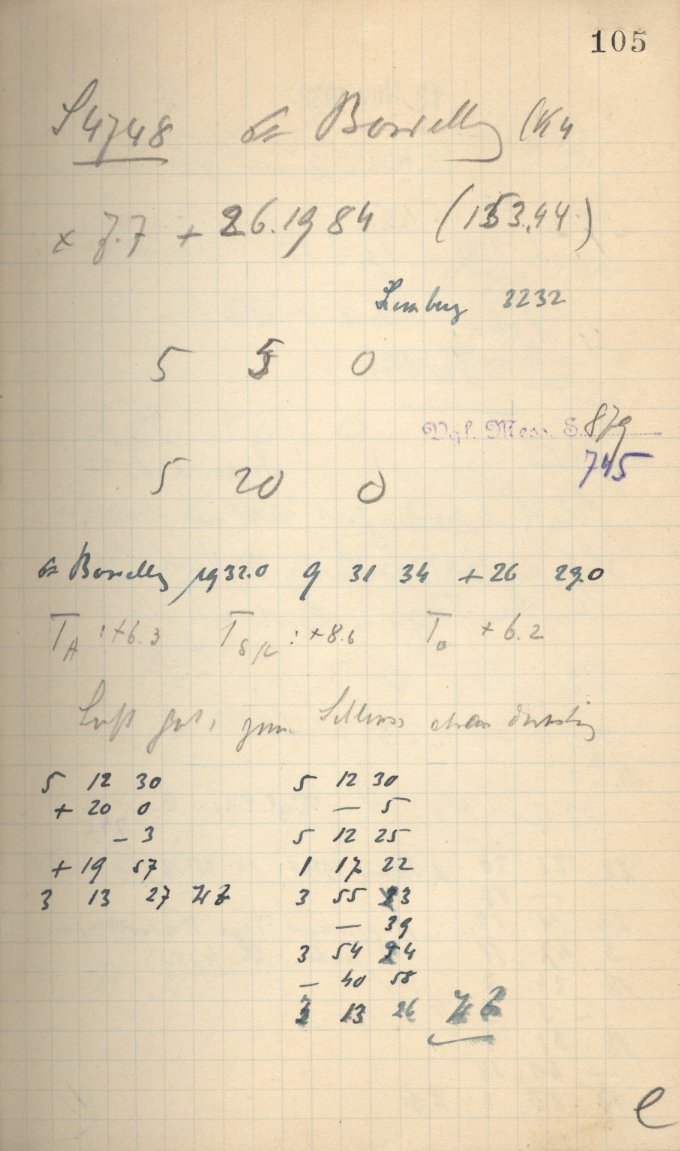 105
S 4748 Borrelly (K4
x 7.7 + 26.1984 (153,44)
3232
5 5 0
Vgl. Mess. S. 879
745
5 20 0
Borrelly 1932.0 9 31 34 +26 29.0
TA : +6.3 TSp : +8.6 To +6.2
Luft gut, zum Schluss etwas dunstig
5 12 30 5 12 30
+ 20 0 — 5
– 3 5 12 25
+ 19 57 1 17 22
3 13 27 3 55 23
— 39
3 54 24
— 40 58
3 13 26
e